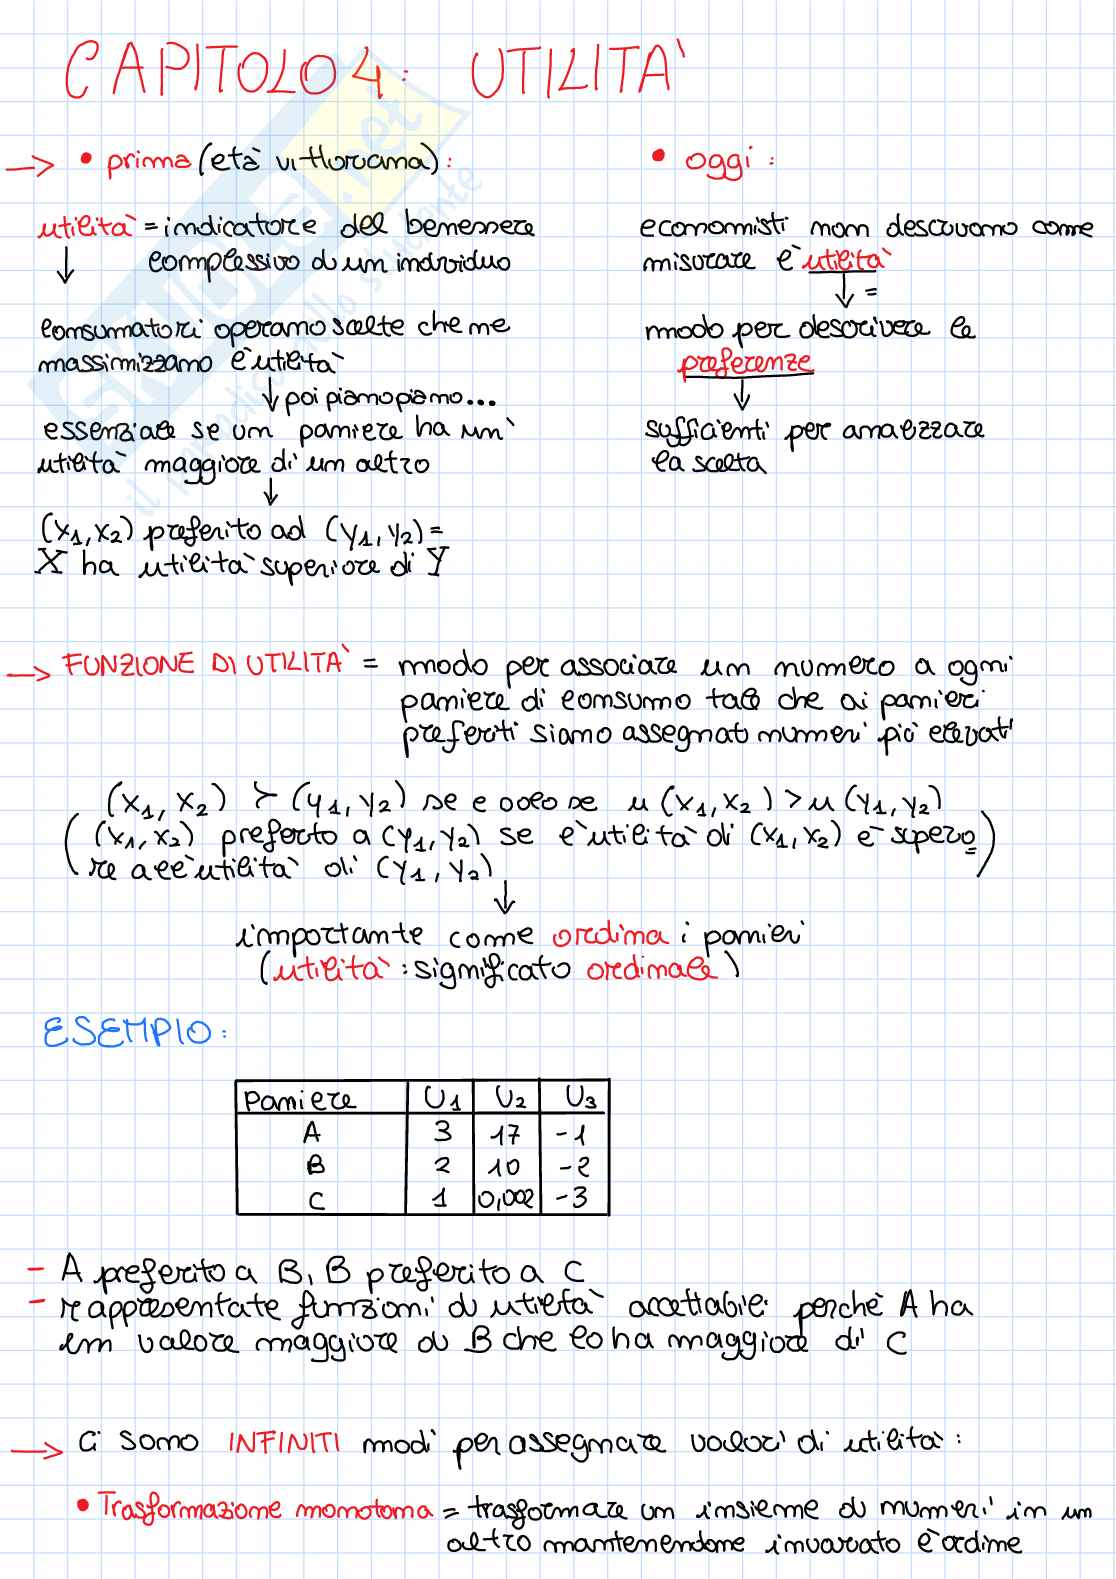 CAPITOLO 4: UTILITÀ
→ • prima (età vittoriana):
utilità = indicatore del benessere
complessivo di un individuo
↓
consumatori operano scelte che ne
massimizzano l'utilità
↓ poi piano piano...
essenziale se un paniere ha un'
utilità maggiore di un altro
↓
(x1, x2) preferito ad (y1, y2) =
X ha utilità superiore di Y
• oggi:
economisti non descrivono come
misurare l'utilità
↓ =
modo per descrivere le
preferenze
↓
sufficienti per analizzare
la scelta
→ FUNZIONE DI UTILITÀ = modo per associare un numero a ogni
paniere di consumo tale che ai panieri
preferiti siano assegnati numeri più elevati
(x1, x2) ≻ (y1, y2) se e solo se u (x1, x2) > u (y1, y2)
((x1, x2) preferito a (y1, y2) se l'utilità di (x1, x2) è superio
re all'utilità di (y1, y2))
↓
importante come ordina i panieri
(utilità: significato ordinale)
ESEMPIO:
Paniere U1 U2 U3
A 3 17 -1
B 2 10 -2
C 1 0,002 -3
- A preferito a B, B preferito a C
- rappresentate funzioni di utilità accettabili perché A ha
un valore maggiore di B che lo ha maggiore di C
→ Ci sono INFINITI modi per assegnare valori di utilità:
• Trasformazione monotona = trasformare un insieme di numeri in un
altro mantenendone invariato l'ordine
SKUOLA.net
il paradiso dello studente